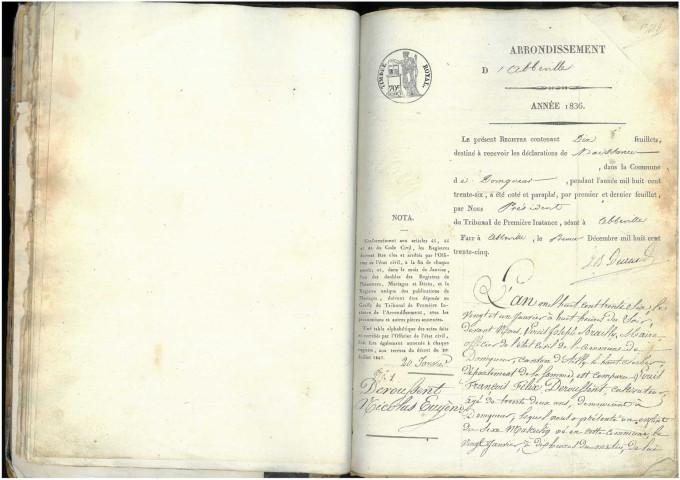 TIMBRE ROYAL.
ARRONDISSEMENT
D'Abbeville
ANNÉE 1836.
LE présent REGISTRE contenant feuillets,
destiné à recevoir les déclarations de Naissance
, dans la Commune
d e Domqueur , pendant l'année mil huit cent
trente-six, a été coté et paraphé, par premier et dernier feuillet,
par Nous Président
du Tribunal de Première Instance, séant à Abbeville
FAIT à Abbeville, le Décembre mil huit cent
trente-cinq.
NOTA.
Conformément aux articles
et de du Code Civil, les Registres
doivent être clos et arrêtés par l'Offi-
cier de l'état civil, à la fin de chaque
année; et, dans le mois de Janvier,
l'un des doubles des Registres de
Naissances, Mariages et Décès, et le
Registre unique des publications de
Mariages, doivent être déposés au
Greffe du Tribunal de Première Ins-
tance de l'Arrondissement, avec les
procurations et autres pièces annexées.
Une table alphabétique des actes faite
et certifiée par l'Officier de l'état civil,
doit être également annexée à chaque
registre, aux termes du décret du 20
Juillet 1807.
20 Janvier
N.º 1
Deroussent
Nicolas Eugène
L'an mil huit cent trente six, le
vingt et un janvier à huit heures du soir,
devant Nous, Louis Joseph Maire,
officier de l'état Civil de la commune de
Domqueur, canton d'Ailly le haut clocher,
département de la Somme, est comparu Louis
François Félix Deroussent, cultivateur,
âgé de trente deux ans, demeurant à
Domqueur, lequel nous a présenté un enfant
du sexe Masculin né en cette commune, le
vingt Janvier, à dix heures du matin, de lui